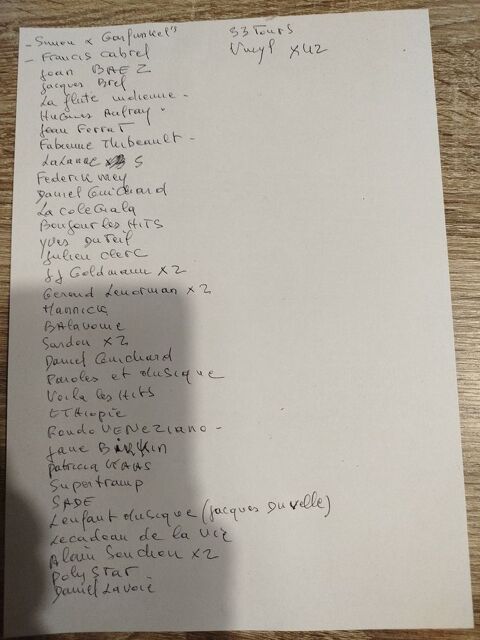 - Simon & Garfunkel's
- Francis Cabrel
Joan BAEZ
Jacques Brel
La flute indienne -
Hugues Aufray.
Jean Ferrat
Fabienne Thibeault -
LaLanne S
Federick Mey
Daniel Guichard
La coleGiala
Bonjour les HiTS
Yves Duteil
Julien clerc
JJ Goldmann x2
Gerard Lenorman x2
Mannick
BAlavoine
Sardou x2
Daniel Guichard
Paroles et Musique
Voila les Hits
ETHiopie
Rondo VENeziano -
Jane Birkin
Patricia KAAS
Supertramp
SADE
L'enfant Musique (Jacques Duvelle)
Lecadeau de la vie
Alain Souchon x2
Poly Star
Daniel Lavoie
33 Tours
Vinyl x42